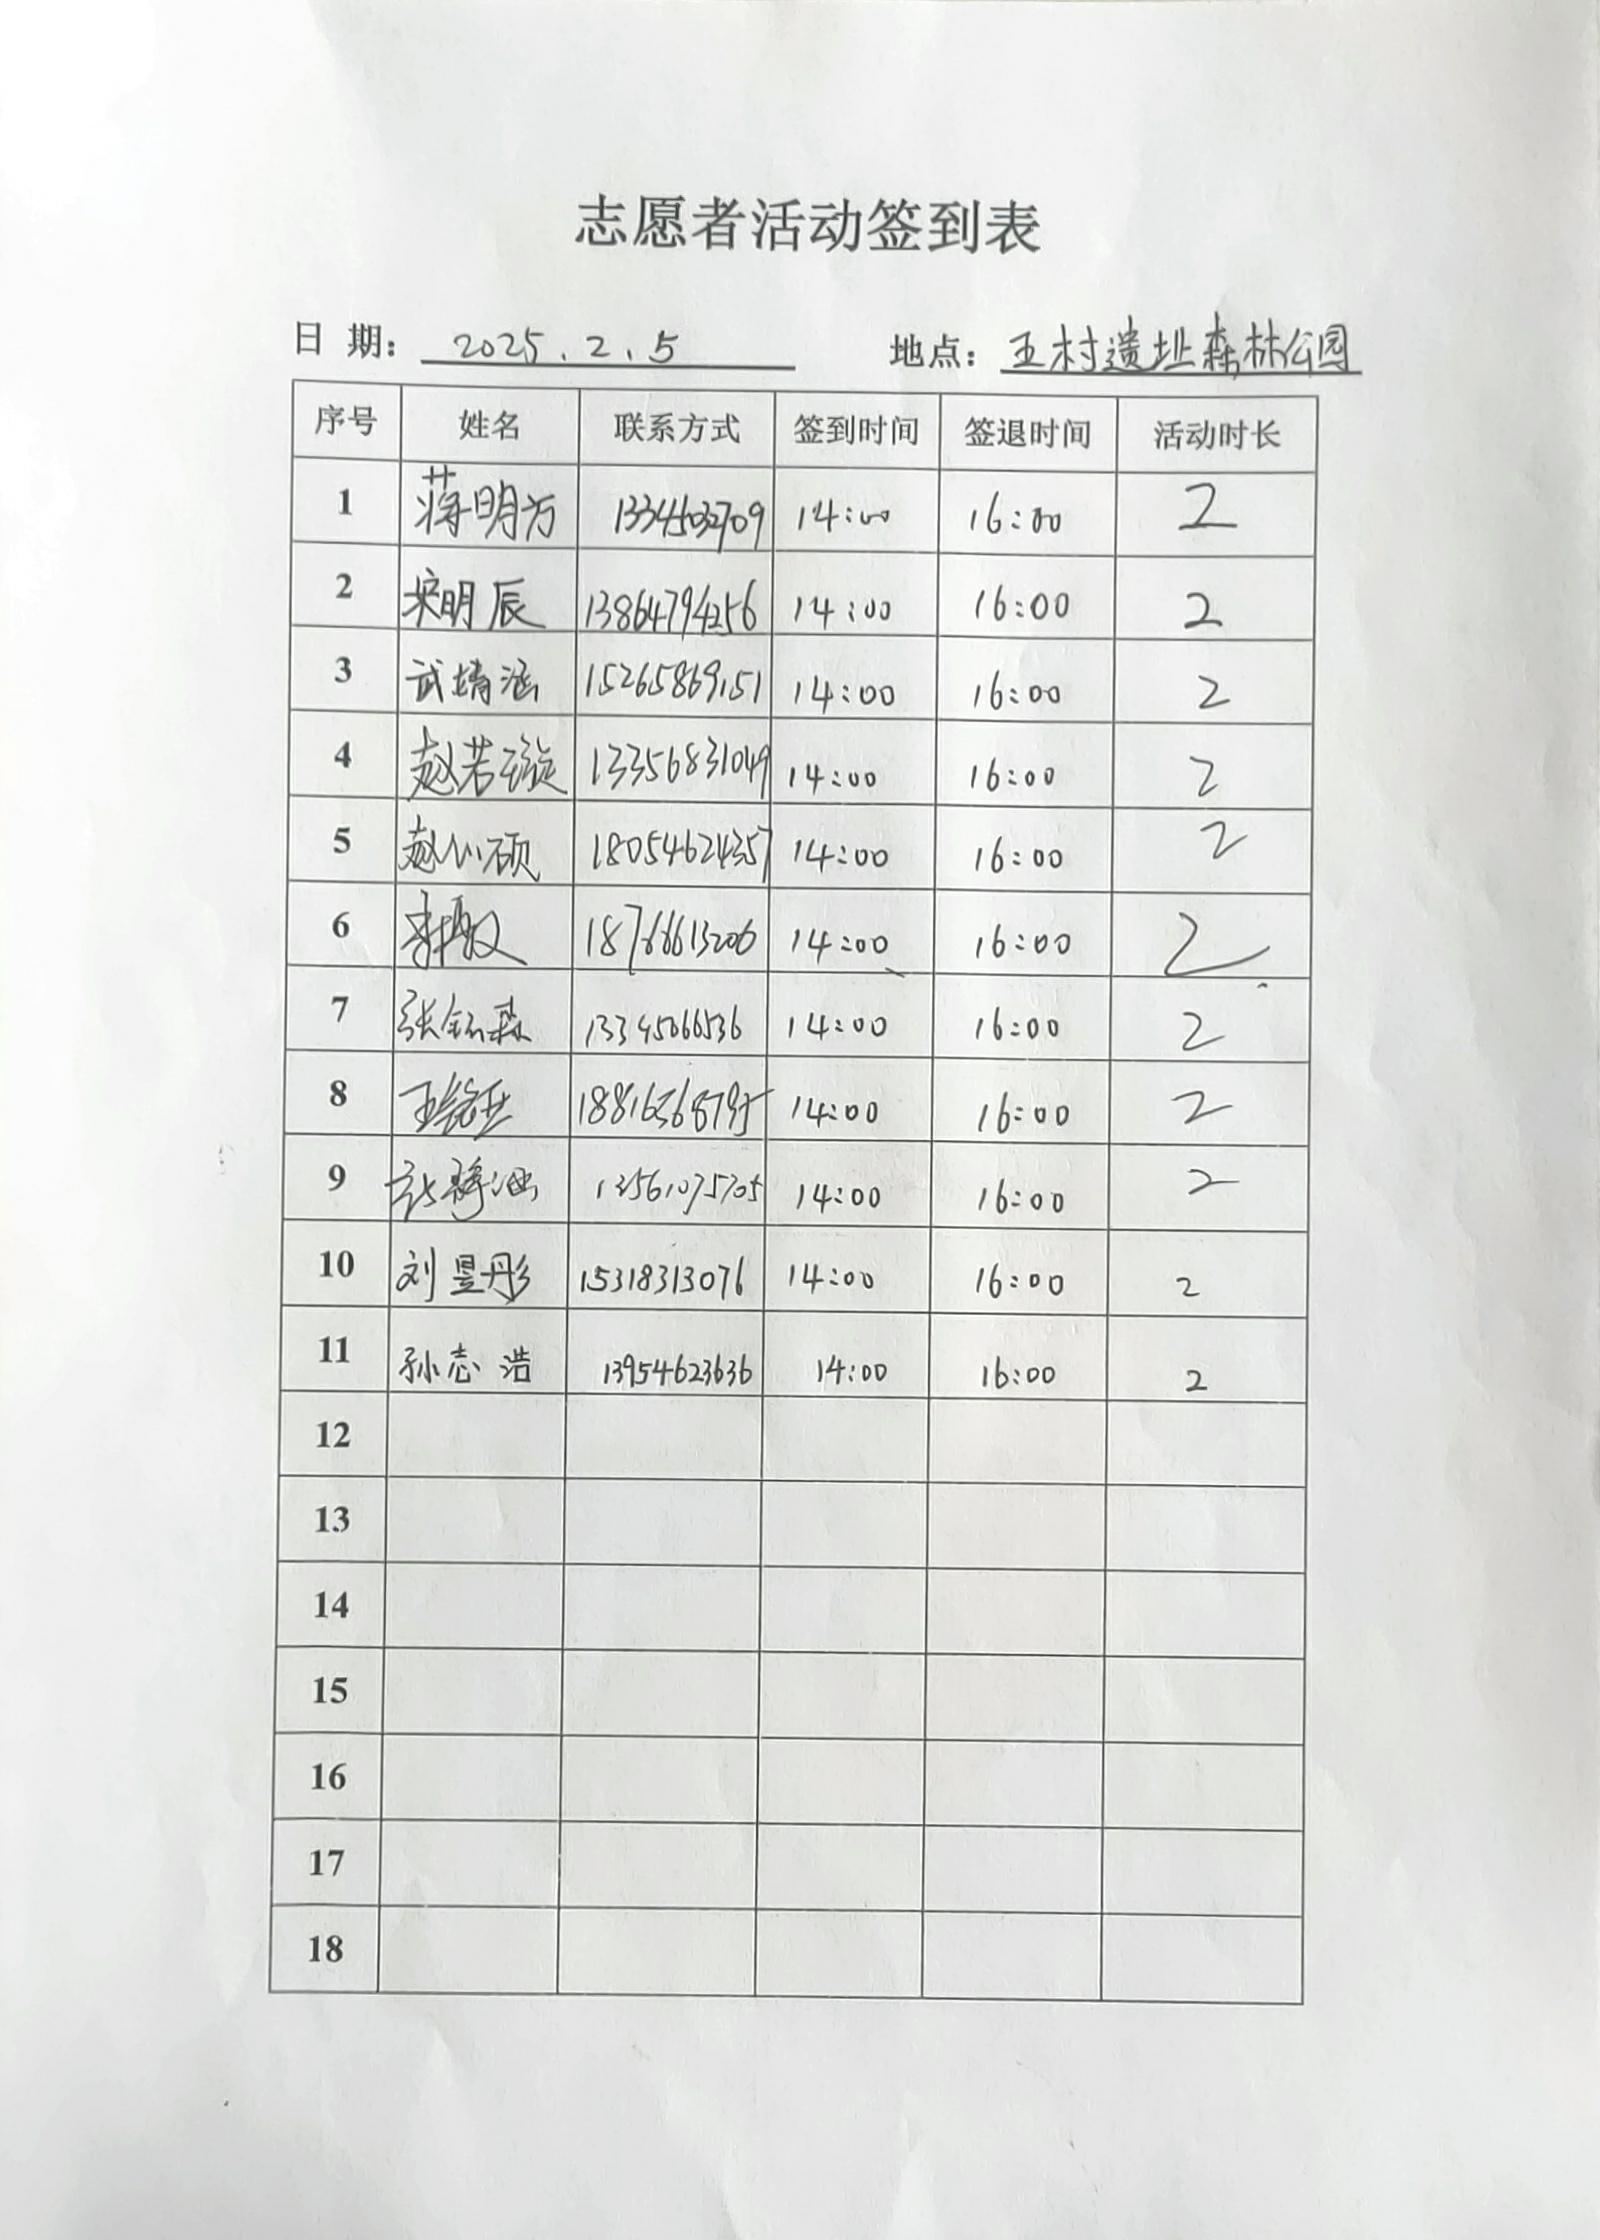 志愿者活动签到表
日 期： 2025.2.5 地点：王村遗址森林公园
序号 姓名 联系方式 签到时间 签退时间 活动时长
1 蒋明方 13345032709 14:00 16:00 2
2 宋明辰 13864794256 14:00 16:00 2
3 武婧涵 15265869151 14:00 16:00 2
4 赵若璇 13356831049 14:00 16:00 2
5 赵心硕 18054624357 14:00 16:00 2
6 18766613206 14:00 16:00 2
7 张钰森 13345066536 14:00 16:00 2
8 14:00 16:00 2
9 13561075705 14:00 16:00 2
10 刘昱彤 15318313076 14:00 16:00 2
11 孙志浩 13954623636 14:00 16:00 2
12
13
14
15
16
17
18